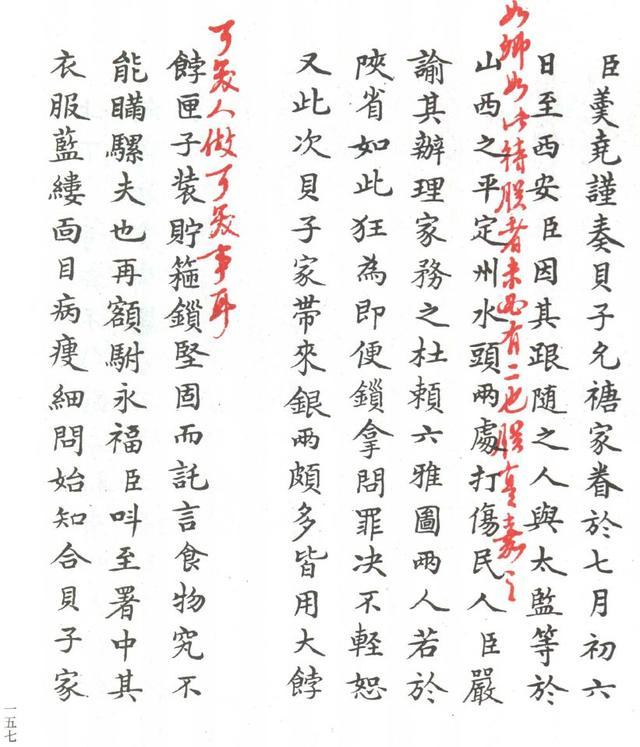 臣羹堯謹奏貝子允禟家眷於七月初六
日至西安臣因其跟隨之人與太監等於
如卿如此待朕者未必有二也朕實嘉之
山西之平定州水頭兩處打傷民人臣嚴
諭其辦理家務之杜賴六雅圖兩人若於
陝省如此狂為即便鎖拿問罪决不輕恕
又此次貝子家帶來銀兩頗多皆用大餑
可笑人做可笑事耳
餑匣子裝貯箍鎖堅固而託言食物究不
能瞞騾夫也再額駙永福臣呌至署中其
衣服藍縷面目病瘦細問始知合貝子家
一五七